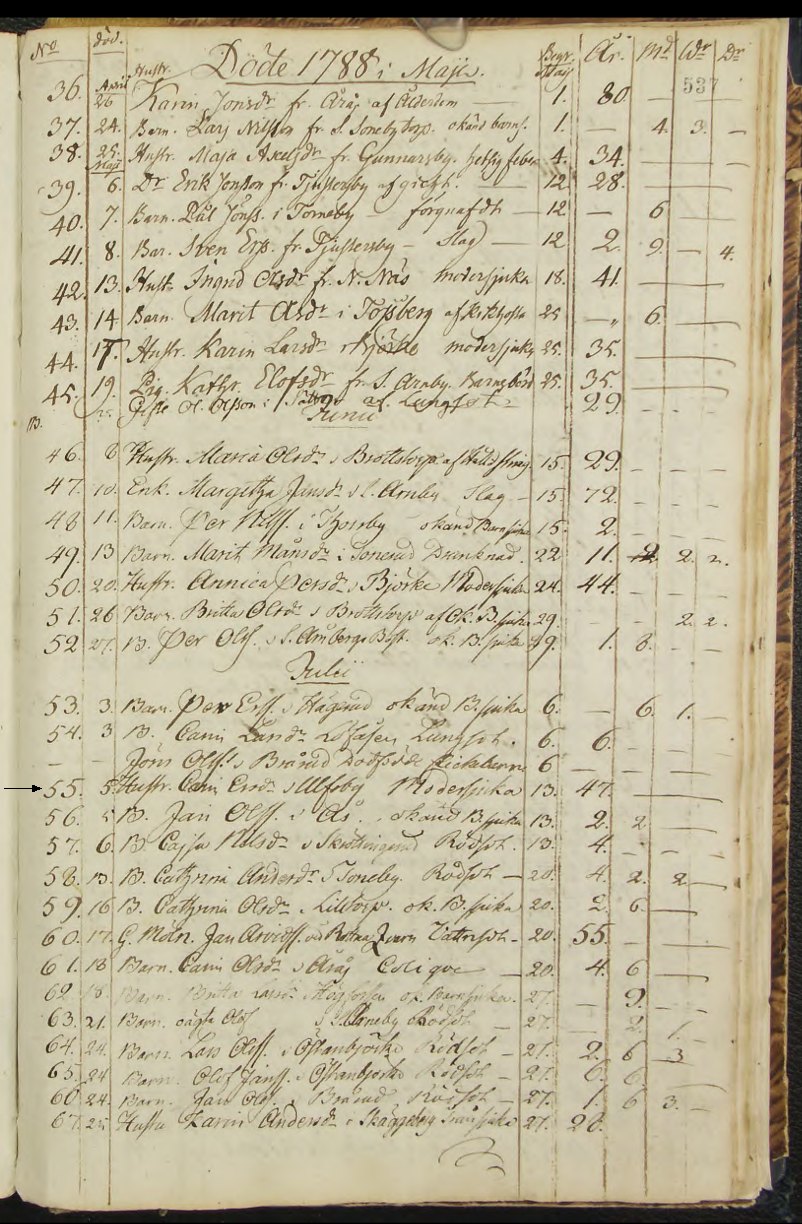 No död. Begr. År. Md Wr Dr
Hustr. Döde 1788 i Maji. Maij 537
36. April 26 Karin Jonsdr fr. Årås af Ålderdom 1. 80. —
37. 24. Barn. Lars Nilsson fr. S. okänd barns. 1. — 4. 3. —
38. 25. Hustr. Maja Axelsdr fr. Gunnarsby. hetsig feber 4. 34. — —
Maji
39. 6. Dr Erik Jonsson fr. af gickt. — 12 28. —
40. 7. Barn. Pål Jönss. i Torneby — förqvafdt — 12 — 6
41. 8. Bar. Sven Erss. fr. — Slag — 12 2. 9. — 4.
42. 13. Hustr. Ingrid Olsdr fr. N. Näs modersjuka 18. 41. —
43. 14 Barn. Marit Olsdr i Tossberg af 25 — 6. —
44. 17. Hustr. Karin Larsdr i Björke modersjuka 25. 35. —
45. 19. Pig. Kathr. Elofsdr fr. S. Arnby. Barnsbörd 25. 35. —
Gifte Ol. Olsson i af Lungsot 29. - -
Junii
46. 8 Hustr. Maria Olsdr i Brottstorp af 15. 29. - - -
47. 10. Enk. Margetha Jansdr i L. Arnby. Slag — 15. 72. - - -
48 11. Barn. Per Nilss. i okänd Barnsjuka 15. 2. - - -
49. 13 Barn. Marit Månsdr i Drunknad. 22 11. 2. 2. 2.
50. 20. Hustr. Annica Persdr i Björke Modersjuka 24. 44. - - -
51. 26 Barn. Britta Olsdr i Brottstorp af Ok. B. sjuka 29. - - 2. 2.
52 27. B. Per Olss. i S. Ambergs ok. B. sjuka 29. 1. 8. - -
Julii
53. 3. Barn. Per Erss. i Hågerud okänd B. sjuka 6. — 6. 1. —
54. 3 B. Carin Larsdr i Lungsot. 6. 6. - -
— — Jöns Olss. i Brårud Dödfödde 6 — - -
55. 5. Hustr. Carin Ersdr i Ulfsby Modersjuka 13. 47. —
56. 5 B. Jan Olss. i Ås. okänd B. sjuka 13. 2. 2 —
57. 6. B. Cajsa Nilsdr i Rödsot. 13. 4. - - -
58. 13. B. Cathrina Andersdr i Toneby. Rödsot — 20. 4. 2. 2. —
59. 16 B. Cathrina Olsdr i Lilltorp. ok. B. sjuka 20. 2. 6. —
60. 17. G. Mdn. Jan Arvidss. vid Rottna Qvarn Vattusot — 20. 55. - —
61. 18 Barn. Carin Olsdr i Årås Colique — 20. 4. 6 —
62 18. Barn. Britta Larsdr i Högfors ok. Barnsjuka. 27. — 9. - -
63. 21. Barn. oägta Olof i S. Arneby Rödsot — 27. — 2. 1. -
64. 24. Barn. Lars Olss. i Östanbjörke Rödsot — 27. 2. 6 3
65. 24 Barn. Olof Janss. i Östanbjörke Rödsot — 27. 6. 6. -
66 24. Barn. Jan Olss. i Brårud. Rödsot — 27. 1. 6 3. -
67. 25. Hustru Karin Andersdr i Skäggeberg 27. 26.